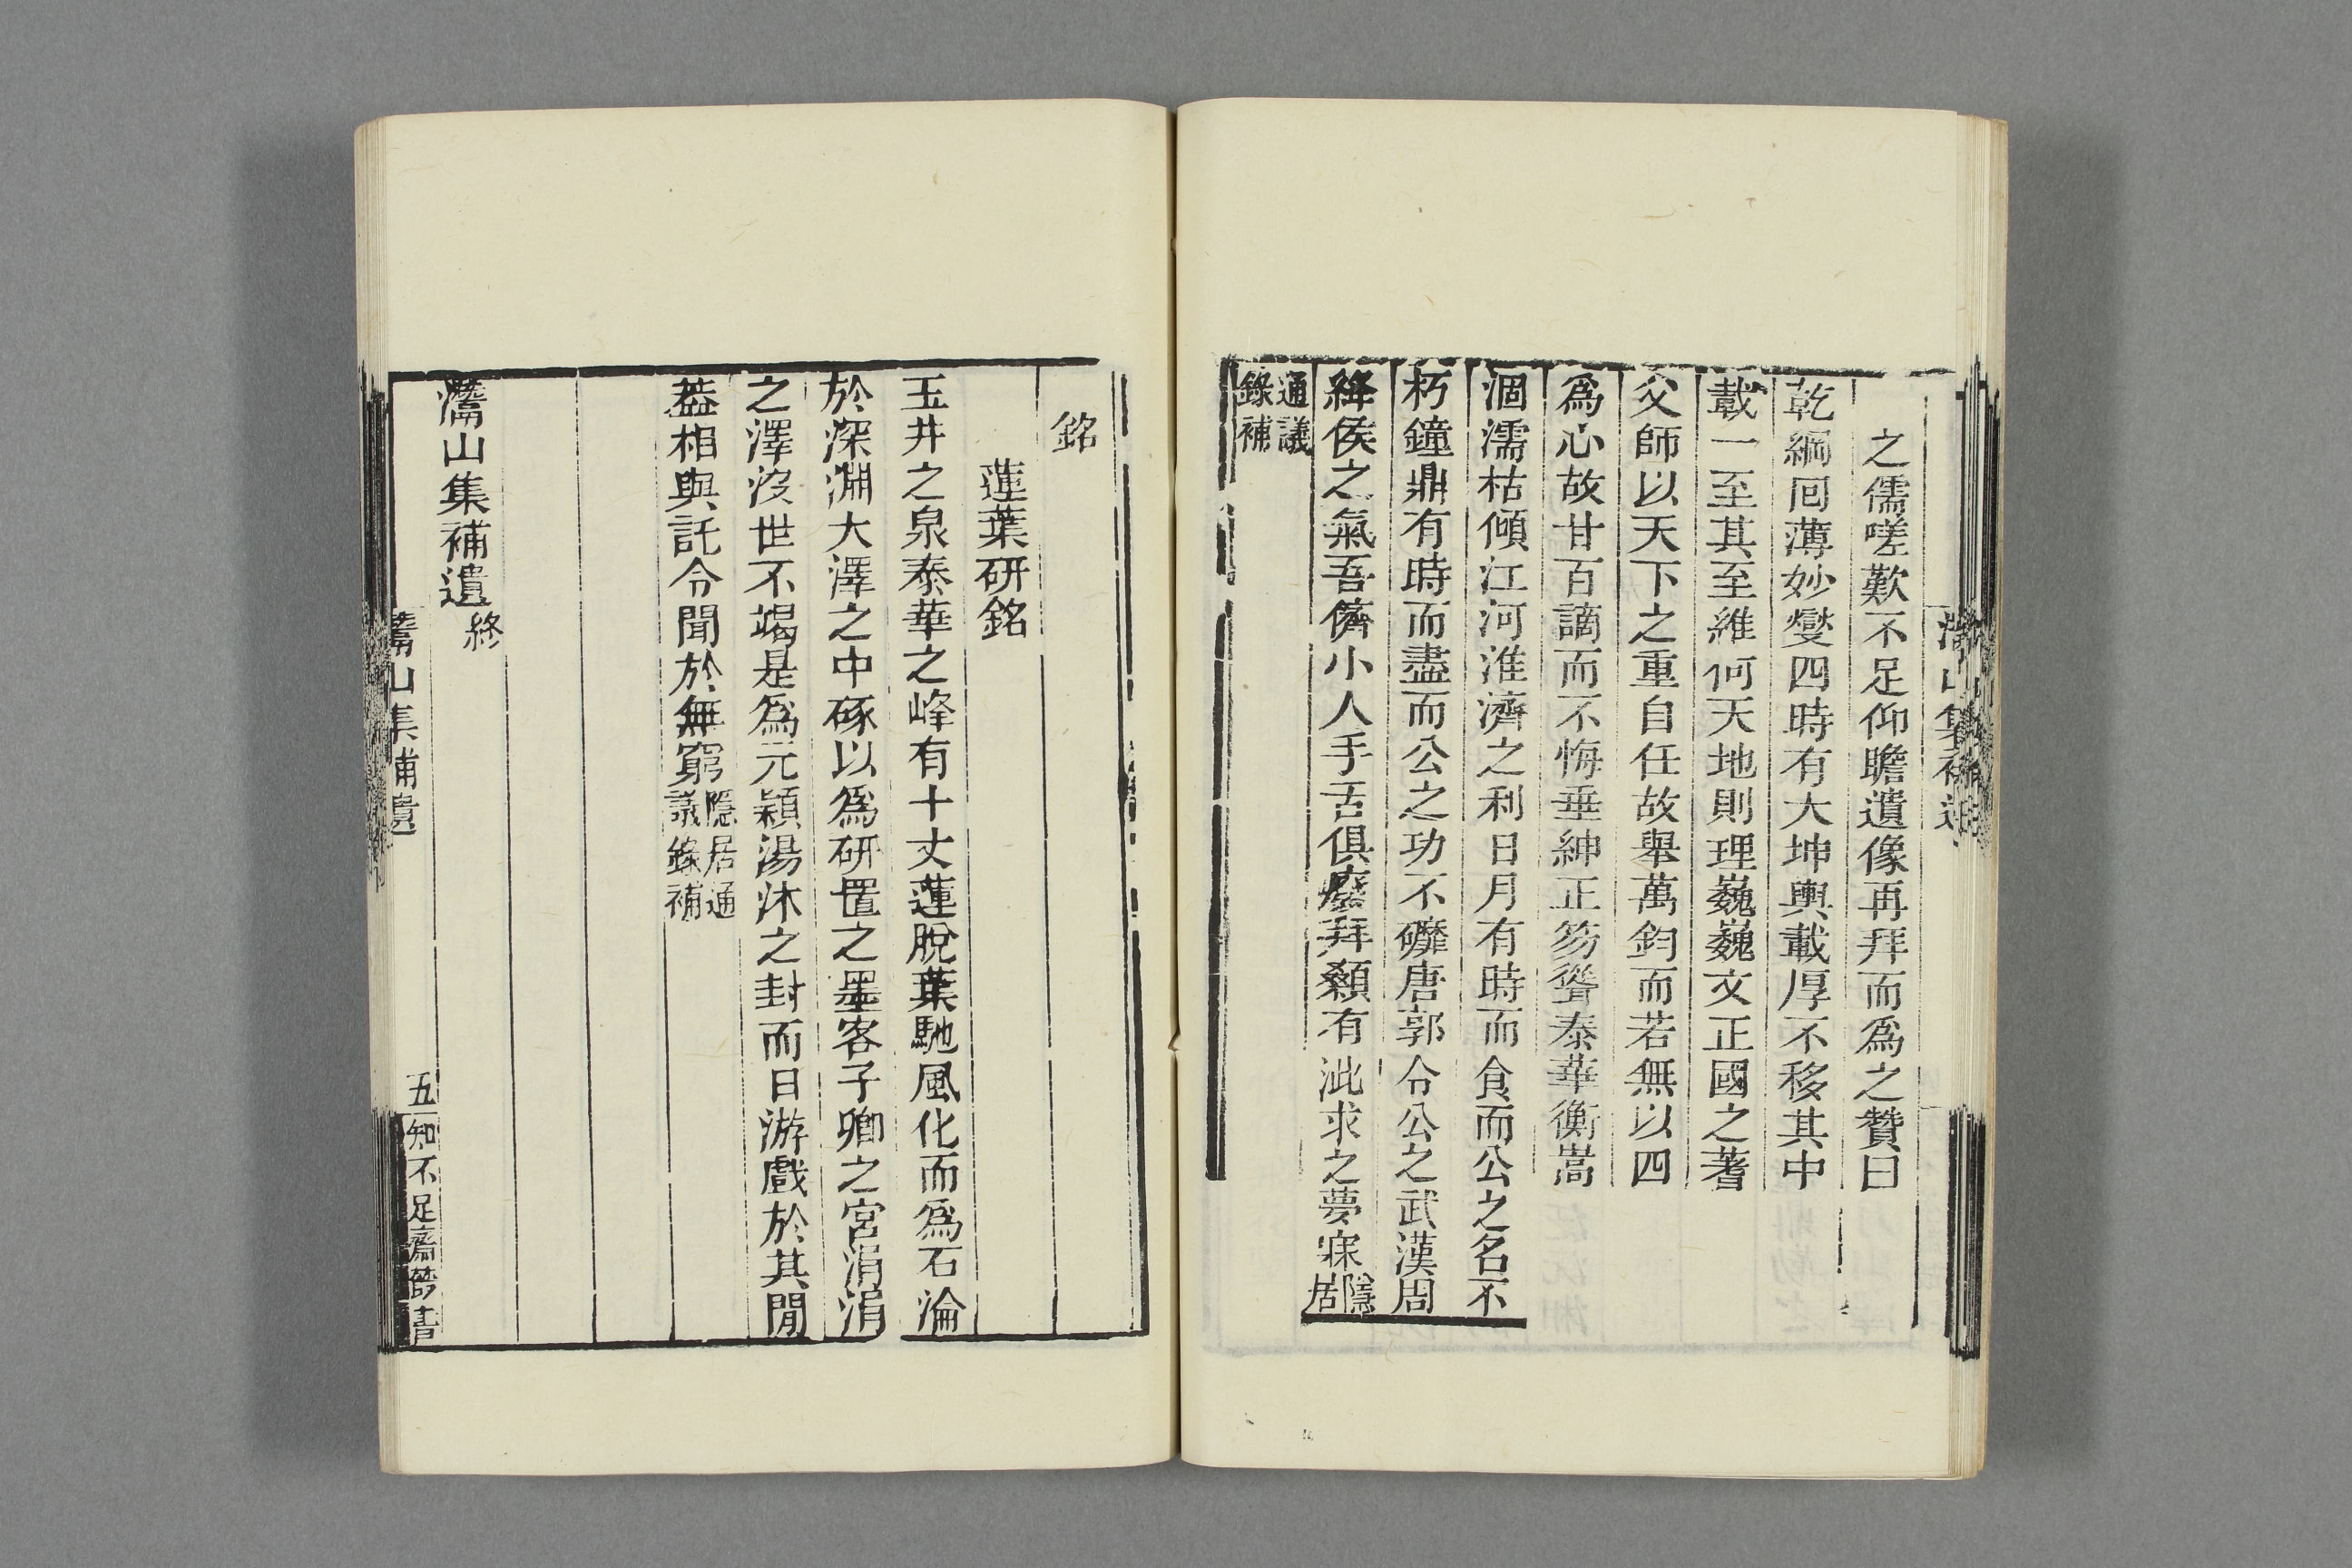 之儒嗟歎不足仰瞻遺像再拜而爲之贊曰
乾綱囘薄妙燮四時有大坤輿載厚不移其中
載一至其至維何天地則理巍巍文正國之蓍
父師以天下之重自任故舉萬鈞而若無以四
爲心故甘百謫而不悔垂紳正笏聳泰華衡嵩
涸濡枯傾江河淮濟之利日月有時而食而公之名不
朽鐘鼎有時而盡而公之功不礲唐郭令公之武漢周
絳侯之氣吾儕小人手舌俱廢拜顙有泚求之夢寐隱居
通議錄補
銘
蓮葉研銘
玉井之泉泰華之峰有十丈蓮脫葉馳風化而爲石淪
於深淵大澤之中琢以爲研置之墨客子卿之宮涓涓
之澤沒世不竭是爲元穎湯沐之封而日游戲於其閒
葢相與託令聞於無窮隱居通議錄補
灊山集補遺終
灊山集補遺
五
知不足齋叢書